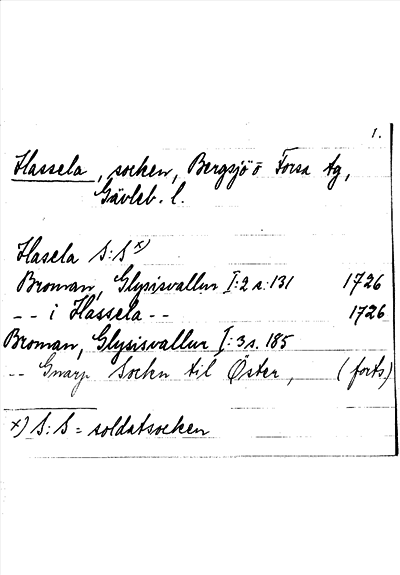 1.
Hassela, socken, Bergsjö o Forsa tg,
Gävleb. l.
Hasela S:S x)
Broman, Glysisvallur I:2 s. 131 1726
-- i Hassela -- 1726
Broman, Glysisvallur I:3 s. 185
-- Gnarp Sockn til Öster, (forts)
x) S:S = soldatsocken